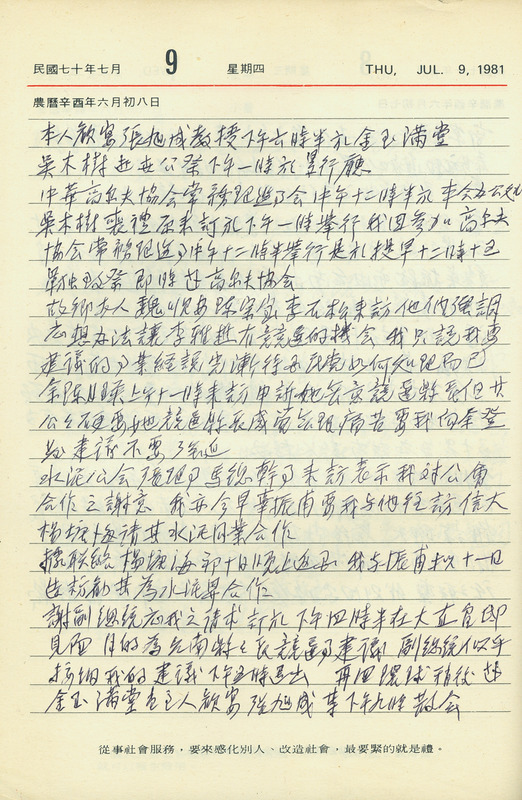 民國七十年七月 9 星期四 THU, JUL. 9, 1981
農曆辛酉年六月初八日
本人歡宴張旭成教授下午六時半於金玉滿堂
吳木樹赴 公祭下午一時於 行廳
中華高爾夫協會常務理監事會中午十二時半於本會辦公
吳木樹喪禮原來訂於下午一時舉行我因參加高爾夫
協會常務理監事中午十二時半舉行 提早十二時十五
致祭即時赴高爾夫協會
故鄉友人魏 李石松來訪他們強調
應想辦法讓李雅樵有競選的機會我只說我要
建議的事業經說完 如何處理而已
余陳月瑛上午十一時來訪申訴她無意競選縣長但其
公公硬要她競選縣長感覺無限痛苦要我向余登
發建議不要強迫
水泥公會張理事 總幹事來訪表示我對公會
合作之謝意 我亦今早 振甫要我与他往訪信大
楊塘海請其水泥同業合作
據聯絡楊塘海初十日晚上返 我与振甫擬十一日
往訪勸其為水泥界合作
謝副總統應我之請求訂於下午四時半在大直官邸
見面目的為台南縣縣長競選事建議副總統似乎
採納我的建議下午五時 出 再回環球稍後赴
金玉滿堂 主人歡宴張旭成 下午九時散會
從事社會服務，要來感化別人、改造社會，最要緊的就是禮。